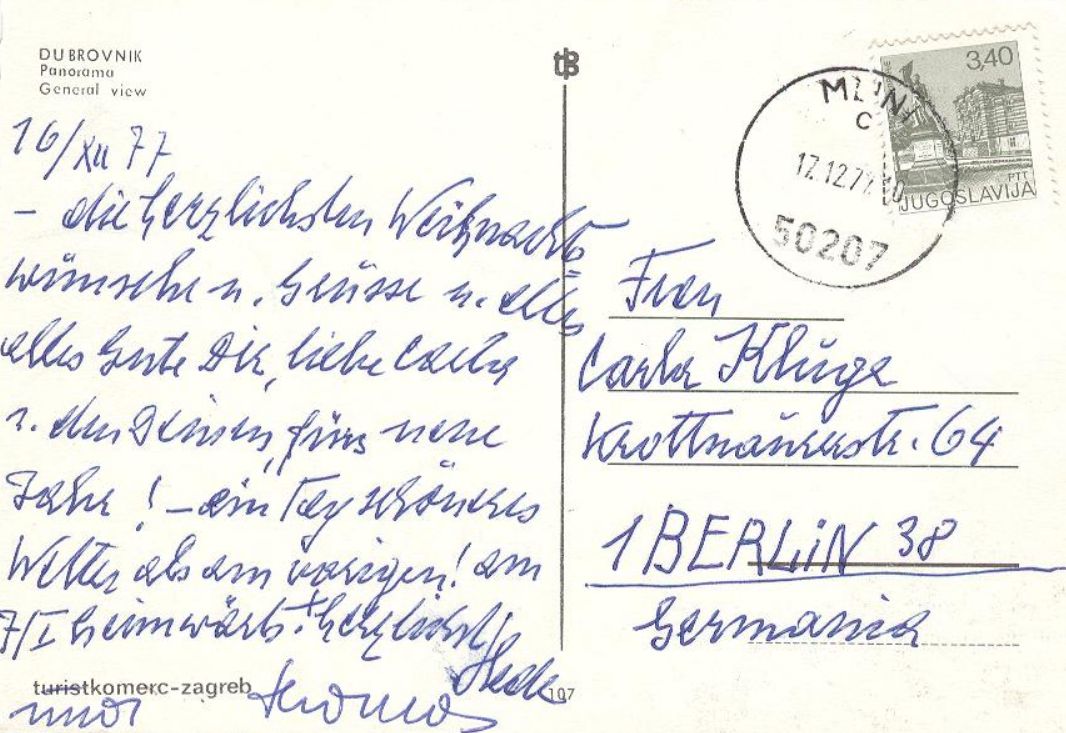 DUBROVNIK
Panorama
General view
tB
16/XII 77
– die herzlichsten Weihnachts=
wünsche u. Grüsse u. alles
alles Gute Dir, liebe Carla
u. den Deinen, fürs neue
Jahr! – ein Tag schöneres
Wetter als am vorigen! am
7/I heimwärts! Herzlichst
und
turistkomerc-zagreb
107
3,40
PTT
JUGOSLAVIJA
MLINI
C
17.12.77.10
50207
Frau
Carla Kluge
Krottnaurerstr. 64
1 BERLIN 38
Germania